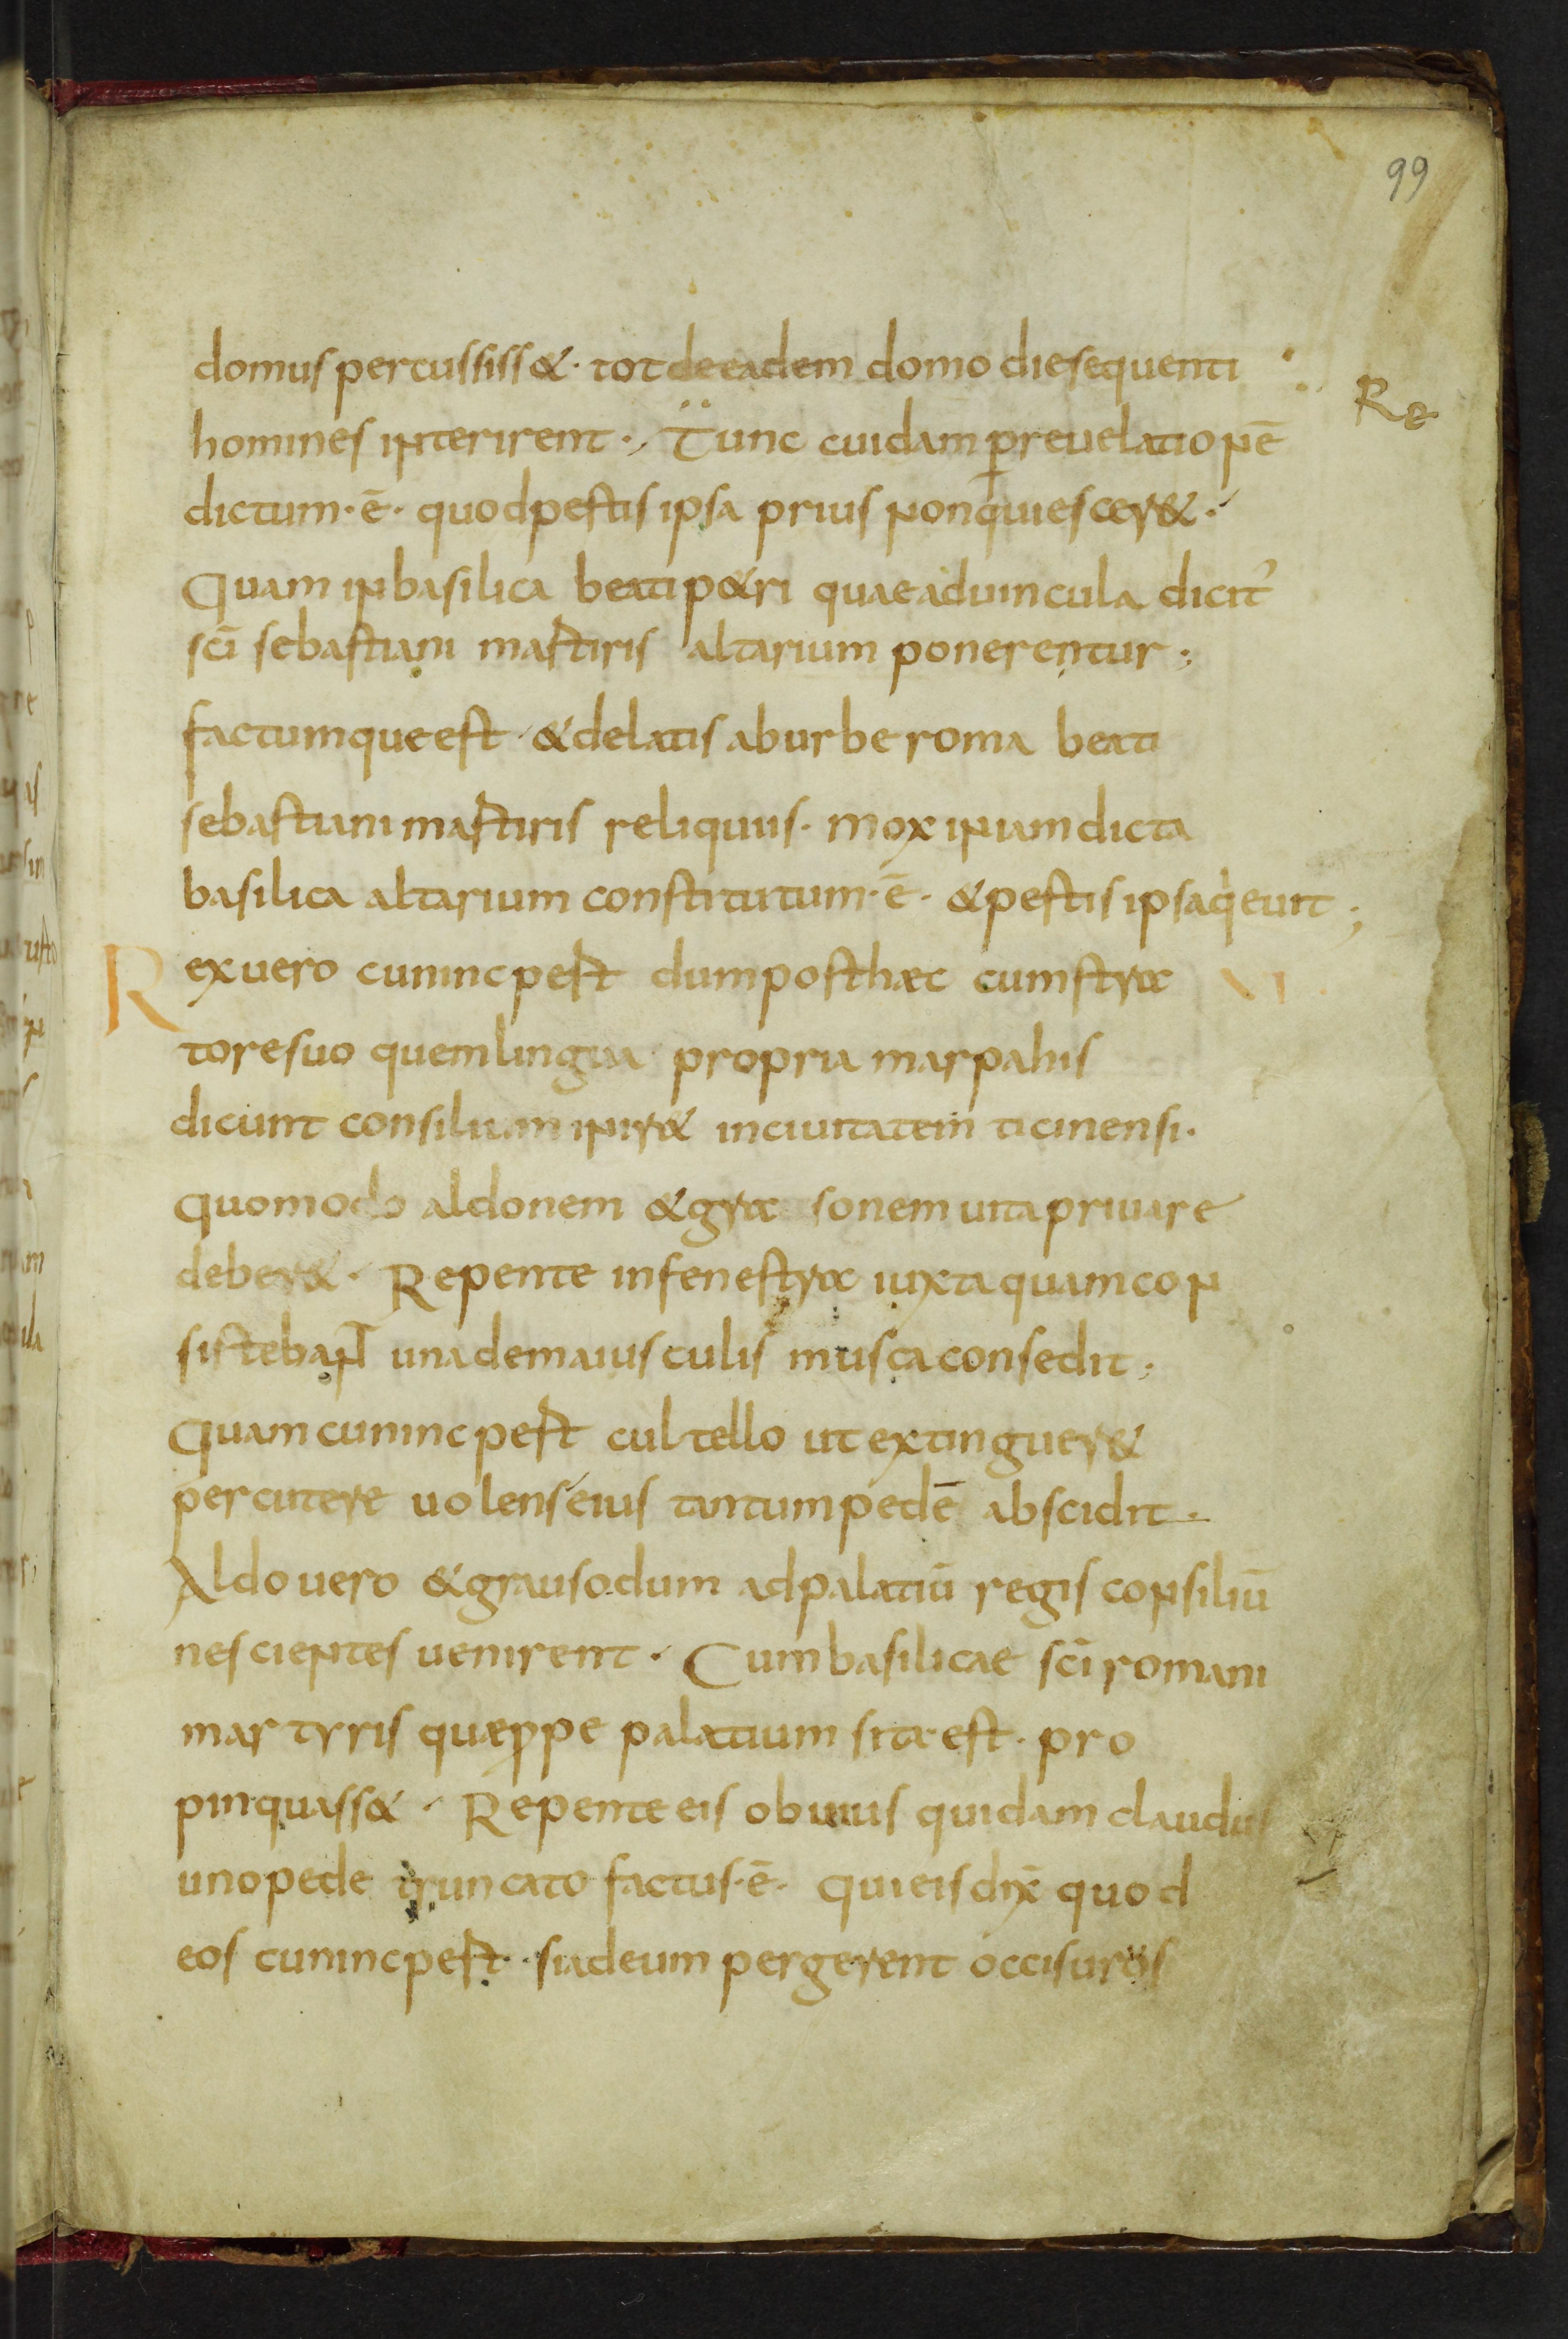 99
domus percussiss&. tot de eadem domo die sequenti
R&
homines interirent. Tunc cuidam p̱ reuelationē
dictum.ē. quod pestis ipsa prius non quiescer&.
Quam in basilica beati p&ri quae ad uincula dicit᷑
sc̄i sebastiani mastiris altarium ponerentur;
factumque est & delatis ab urbe roma beati
sebastiani mastiris reliquiis. mox in iam dicta
basilica altarium constitutum.ē. & pestis ipsa qieuit;
Rex uero cuninc pest dum posthæc cum stra
XI
tore suo quem lingua propria marpahis
dicunt consilium inir& in ciuitatem ticinensi.
quomodo aldonem & gra sonem uita priuare
deber&. Repente in fenestra iuxta quam con
sistebanT una de maiusculis musca consedit;
Quam cuninc pest cultello ut extinguer&
percutere uolens eius tantum pedē abscidit.
Aldo uero & grauso dum ad palatiū regis consiliū
nescientes uenirent. Cum basilicae sc̄i romani
martyris quæ ꝓpe palatium sita est. pro
pinquass&. Repente eis obuius quidam claudus
uno pede truncato factus.ē. qui eis dix̄ quod
eos cuninc pest. si ad eum pergerent occisurus